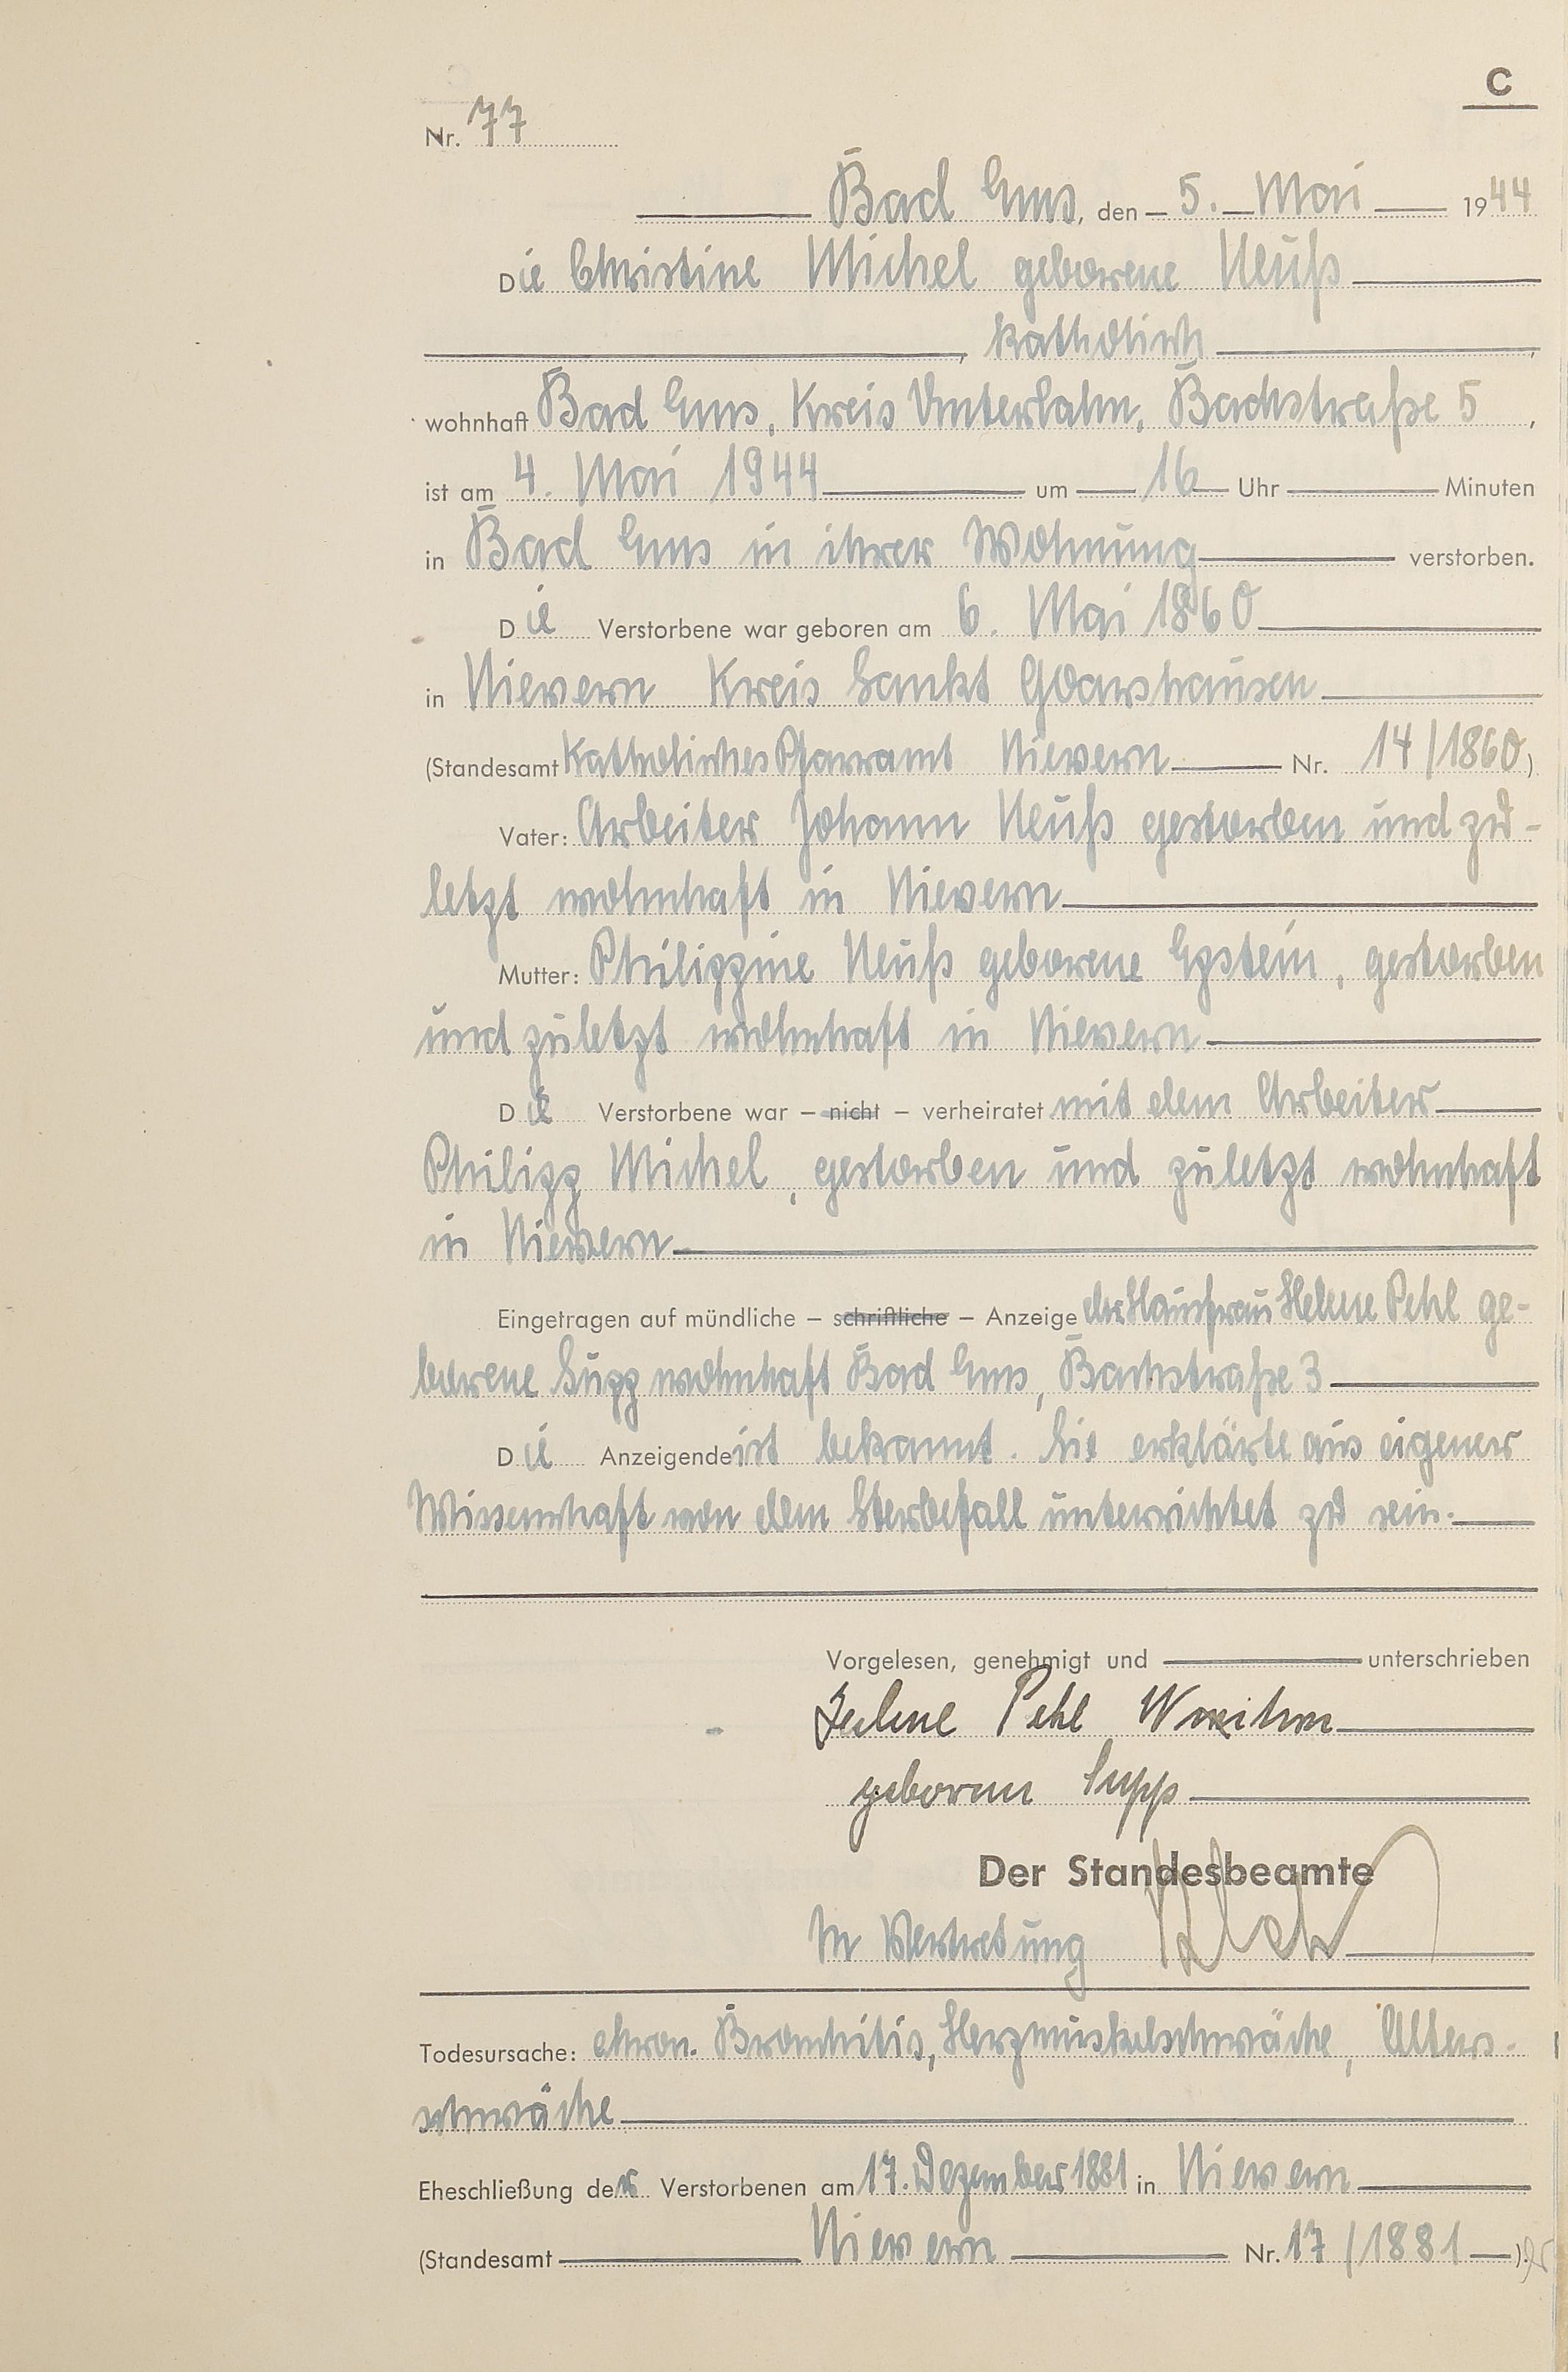 C
Nr. 77
Bad Ems, den 5. Mai 1944
Die Christine Michel geborene Neuß
, katholisch,
wohnhaft Bad Ems, Kreis Unterlahn, Bachstraße 5,
ist am 4. Mai 1944 um 16 Uhr Minuten
in Bad Ems in ihrer Wohnung verstorben.
Die Verstorbene war geboren am 6. Mai 1860
in Nievern Kreis Sankt Goarshausen
(Standesamt Katholisches Pfarramt Nievern Nr. 14/1860)
Vater: Arbeiter Johann Neuß gestorben und zu-
letzt wohnhaft in Nievern
Mutter: Philippine Neuß geborene Epstein, gestorben
und zuletzt wohnhaft in Nievern
Die Verstorbene war – nicht – verheiratet mit dem Arbeiter
Philipp Michel, gestorben und zuletzt wohnhaft
in Nievern
Eingetragen auf mündliche – schriftliche – Anzeige der Hausfrau Helene Pehl ge-
borene Supp wohnhaft Bad Ems, Bachstraße 3
Die Anzeigende ist bekannt. Sie erklärte aus eigener
Wissenschaft von dem Sterbefall unterrichtet zu sein.
Vorgelesen, genehmigt und unterschrieben
Helene Pehl
geboren Supp
Der Standesbeamte
In Vertretung
Todesursache: chron. Bronchitis, Herzmuskelschwäche, Alters-
schwäche
Eheschließung der Verstorbenen am 17. Dezember 1881 in Nievern
(Standesamt Nievern Nr. 17/1881).